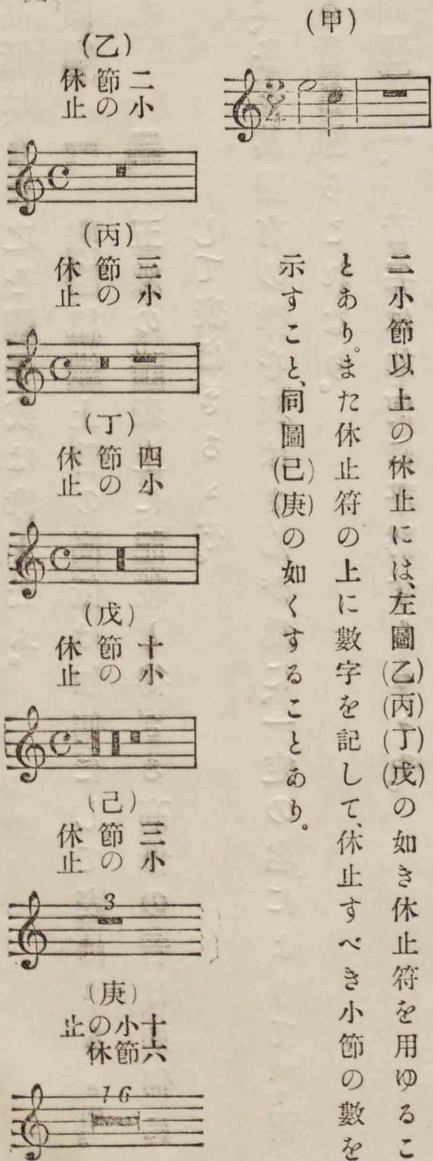 (甲)
3
4
二小節以上の休止には、左圖(乙)(丙)(丁)(戊)の如き休止符を用ゆるこ
とあり。また休止符の上に數字を記して、休止すべき小節の數を
示すこと、同圖(己)(庚)の如くすることあり。
(乙)
二小
節の
休止
(丙)
三小
節の
休止
(丁)
四小
節の
休止
(戊)
十小
節の
休止
(己)
三小
節の
休止
3
(庚)
十六
小節
の休
止
16